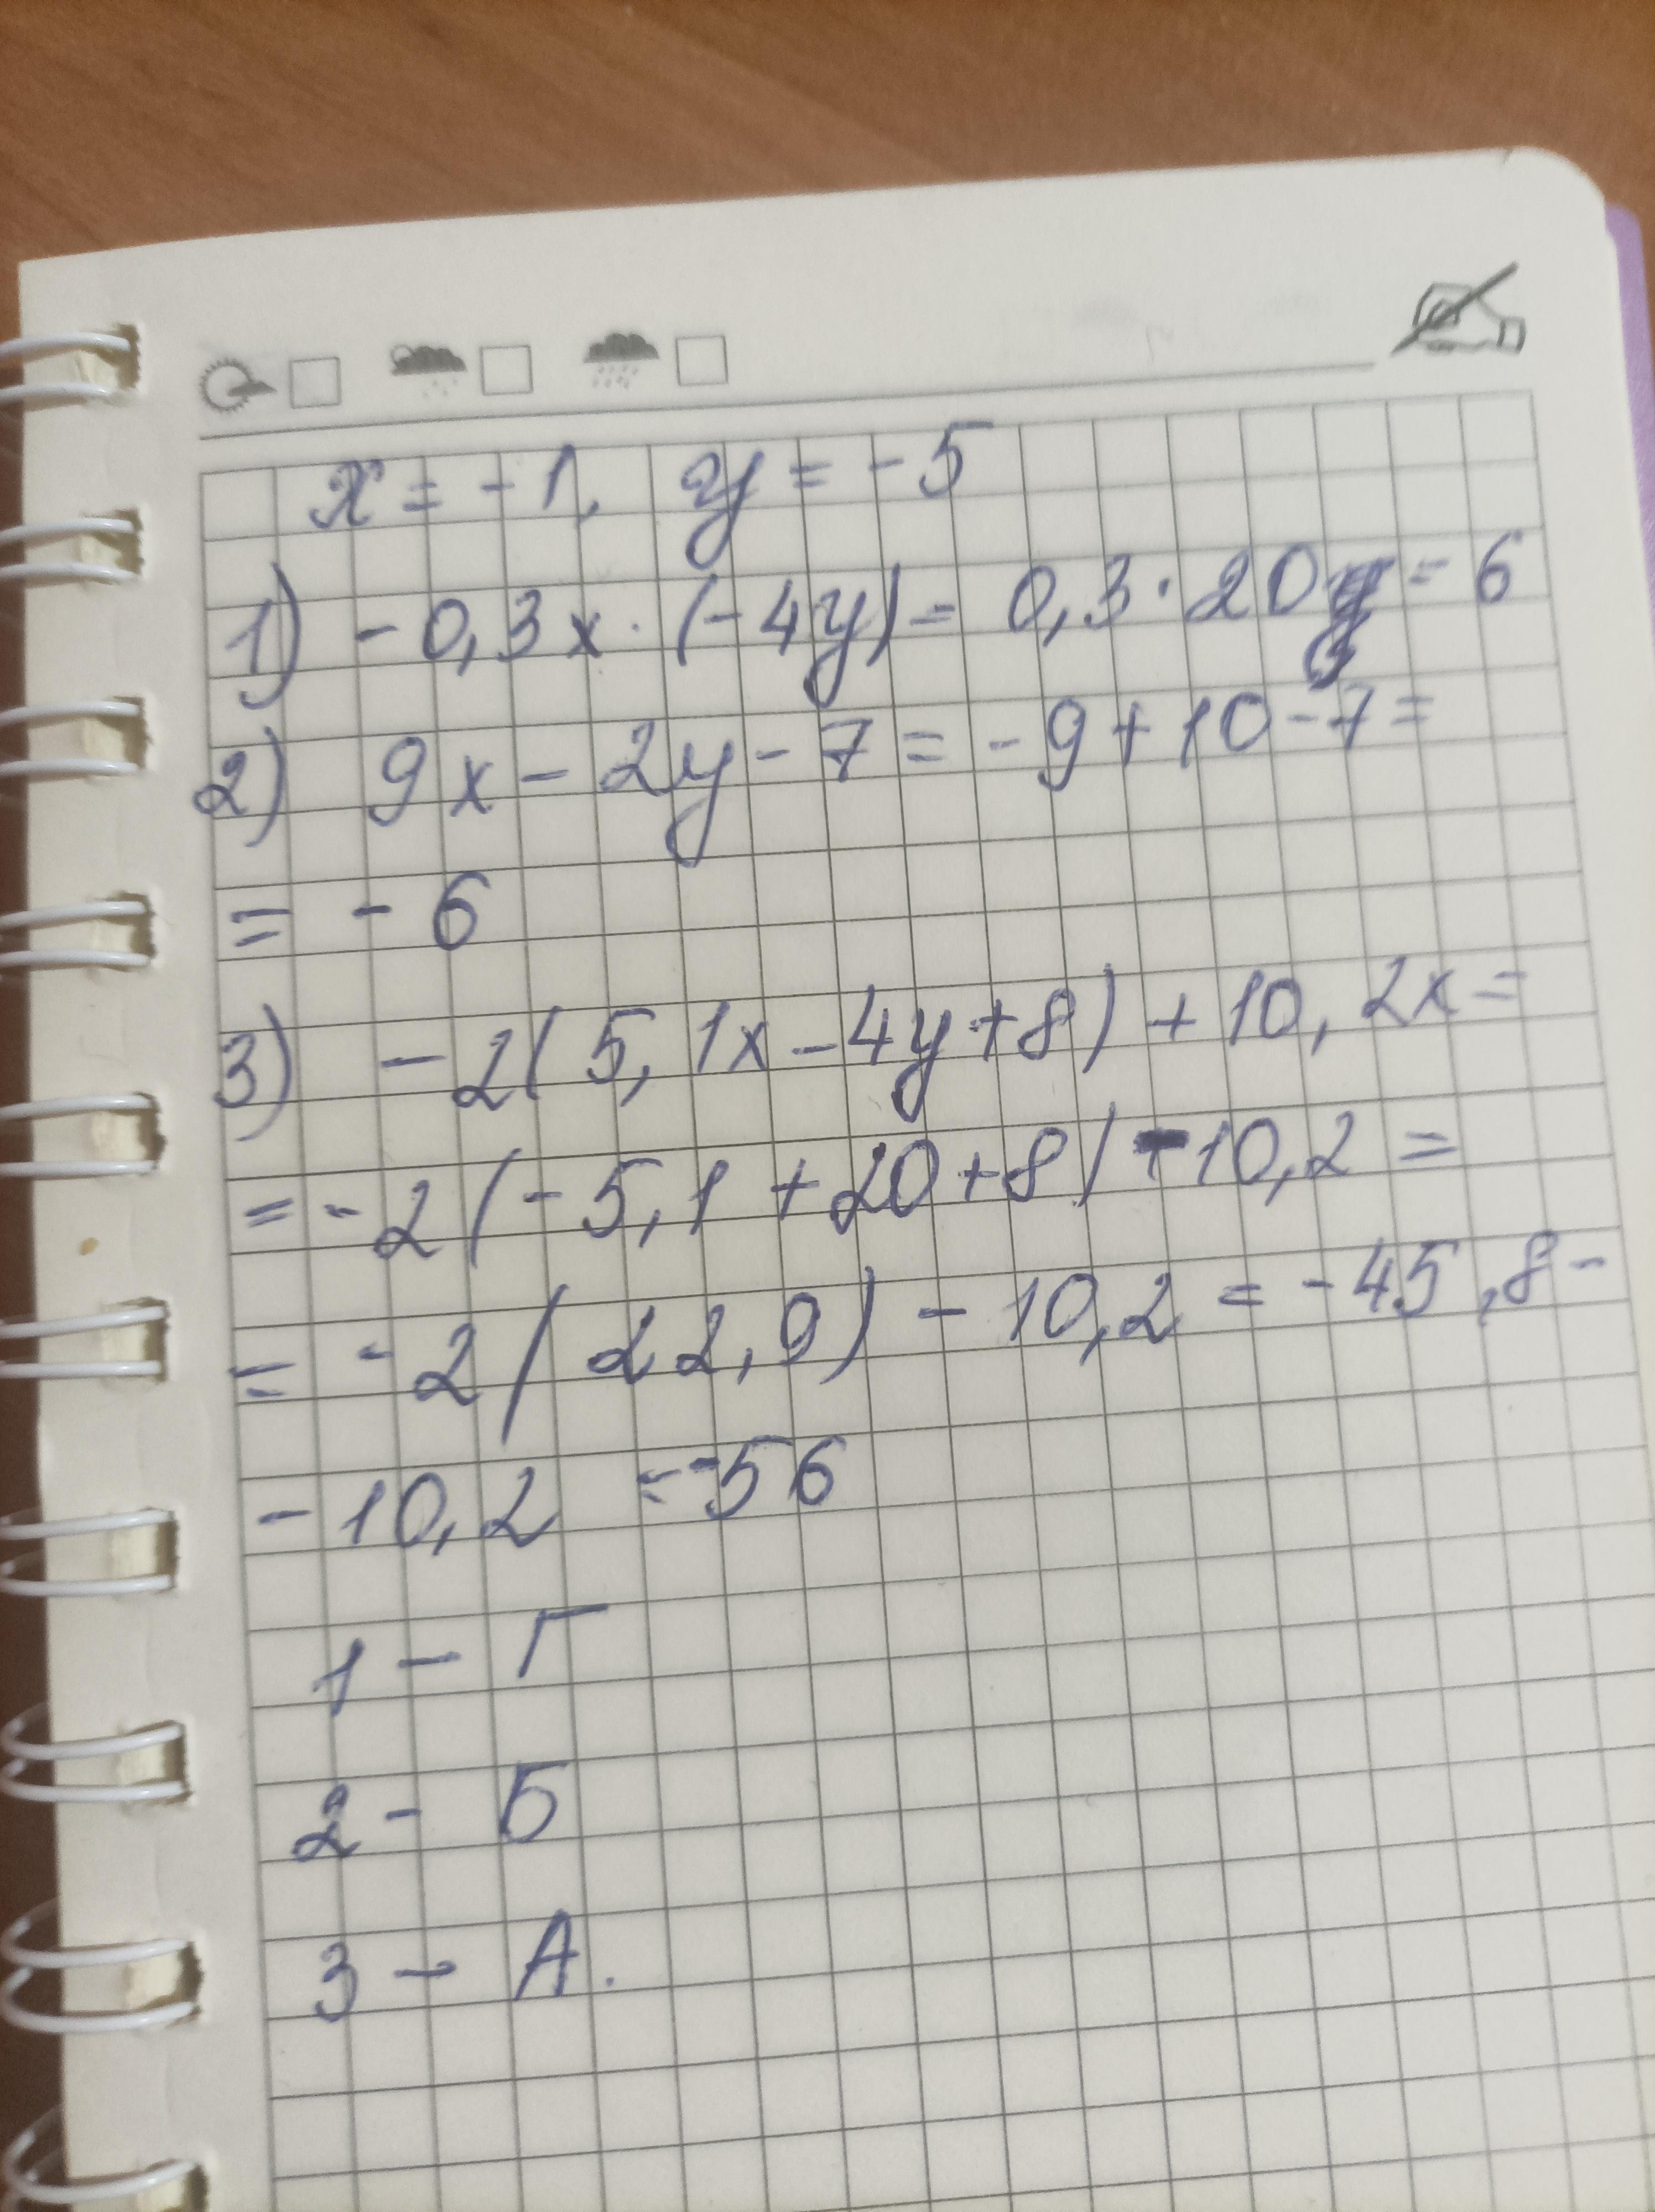 x = -1, y = -5
1) -0,3x · (-4y) = 0,3 · 20 = 6
2) 9x - 2y - 7 = -9 + 10 - 7 =
= -6
3) -2(5,1x - 4y + 8) + 10,2x =
= -2(-5,1 + 20 + 8) - 10,2 =
= -2(22,9) - 10,2 = -45,8 -
- 10,2 = -56
1 - Г
2 - Б
3 - А.